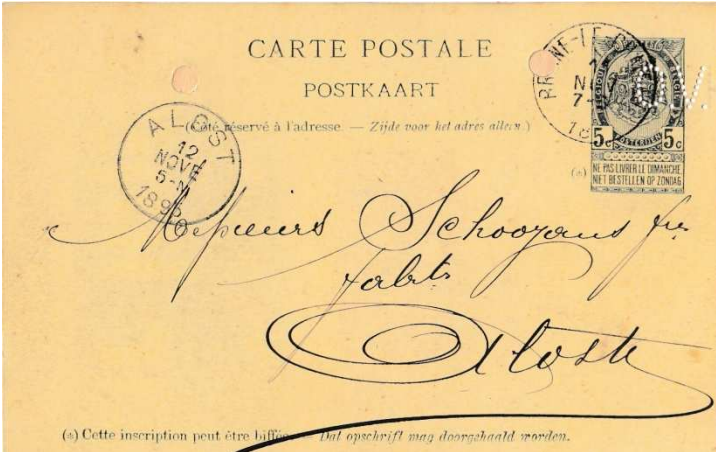 CARTE POSTALE
POSTKAART
(Côté réservé à l'adresse. — Zijde voor het adres alleen.)
BELGIQUE BELGIË
POSTERIJEN
5c 5c
NE PAS LIVRER LE DIMANCHE
NIET BESTELLEN OP ZONDAG
(*)
ALOST
12
NOVE
5-
189
Messieurs Schooyans frs
fabts
Aloste
(*) Cette inscription peut être biffée. — Dat opschrift mag doorgehaald worden.